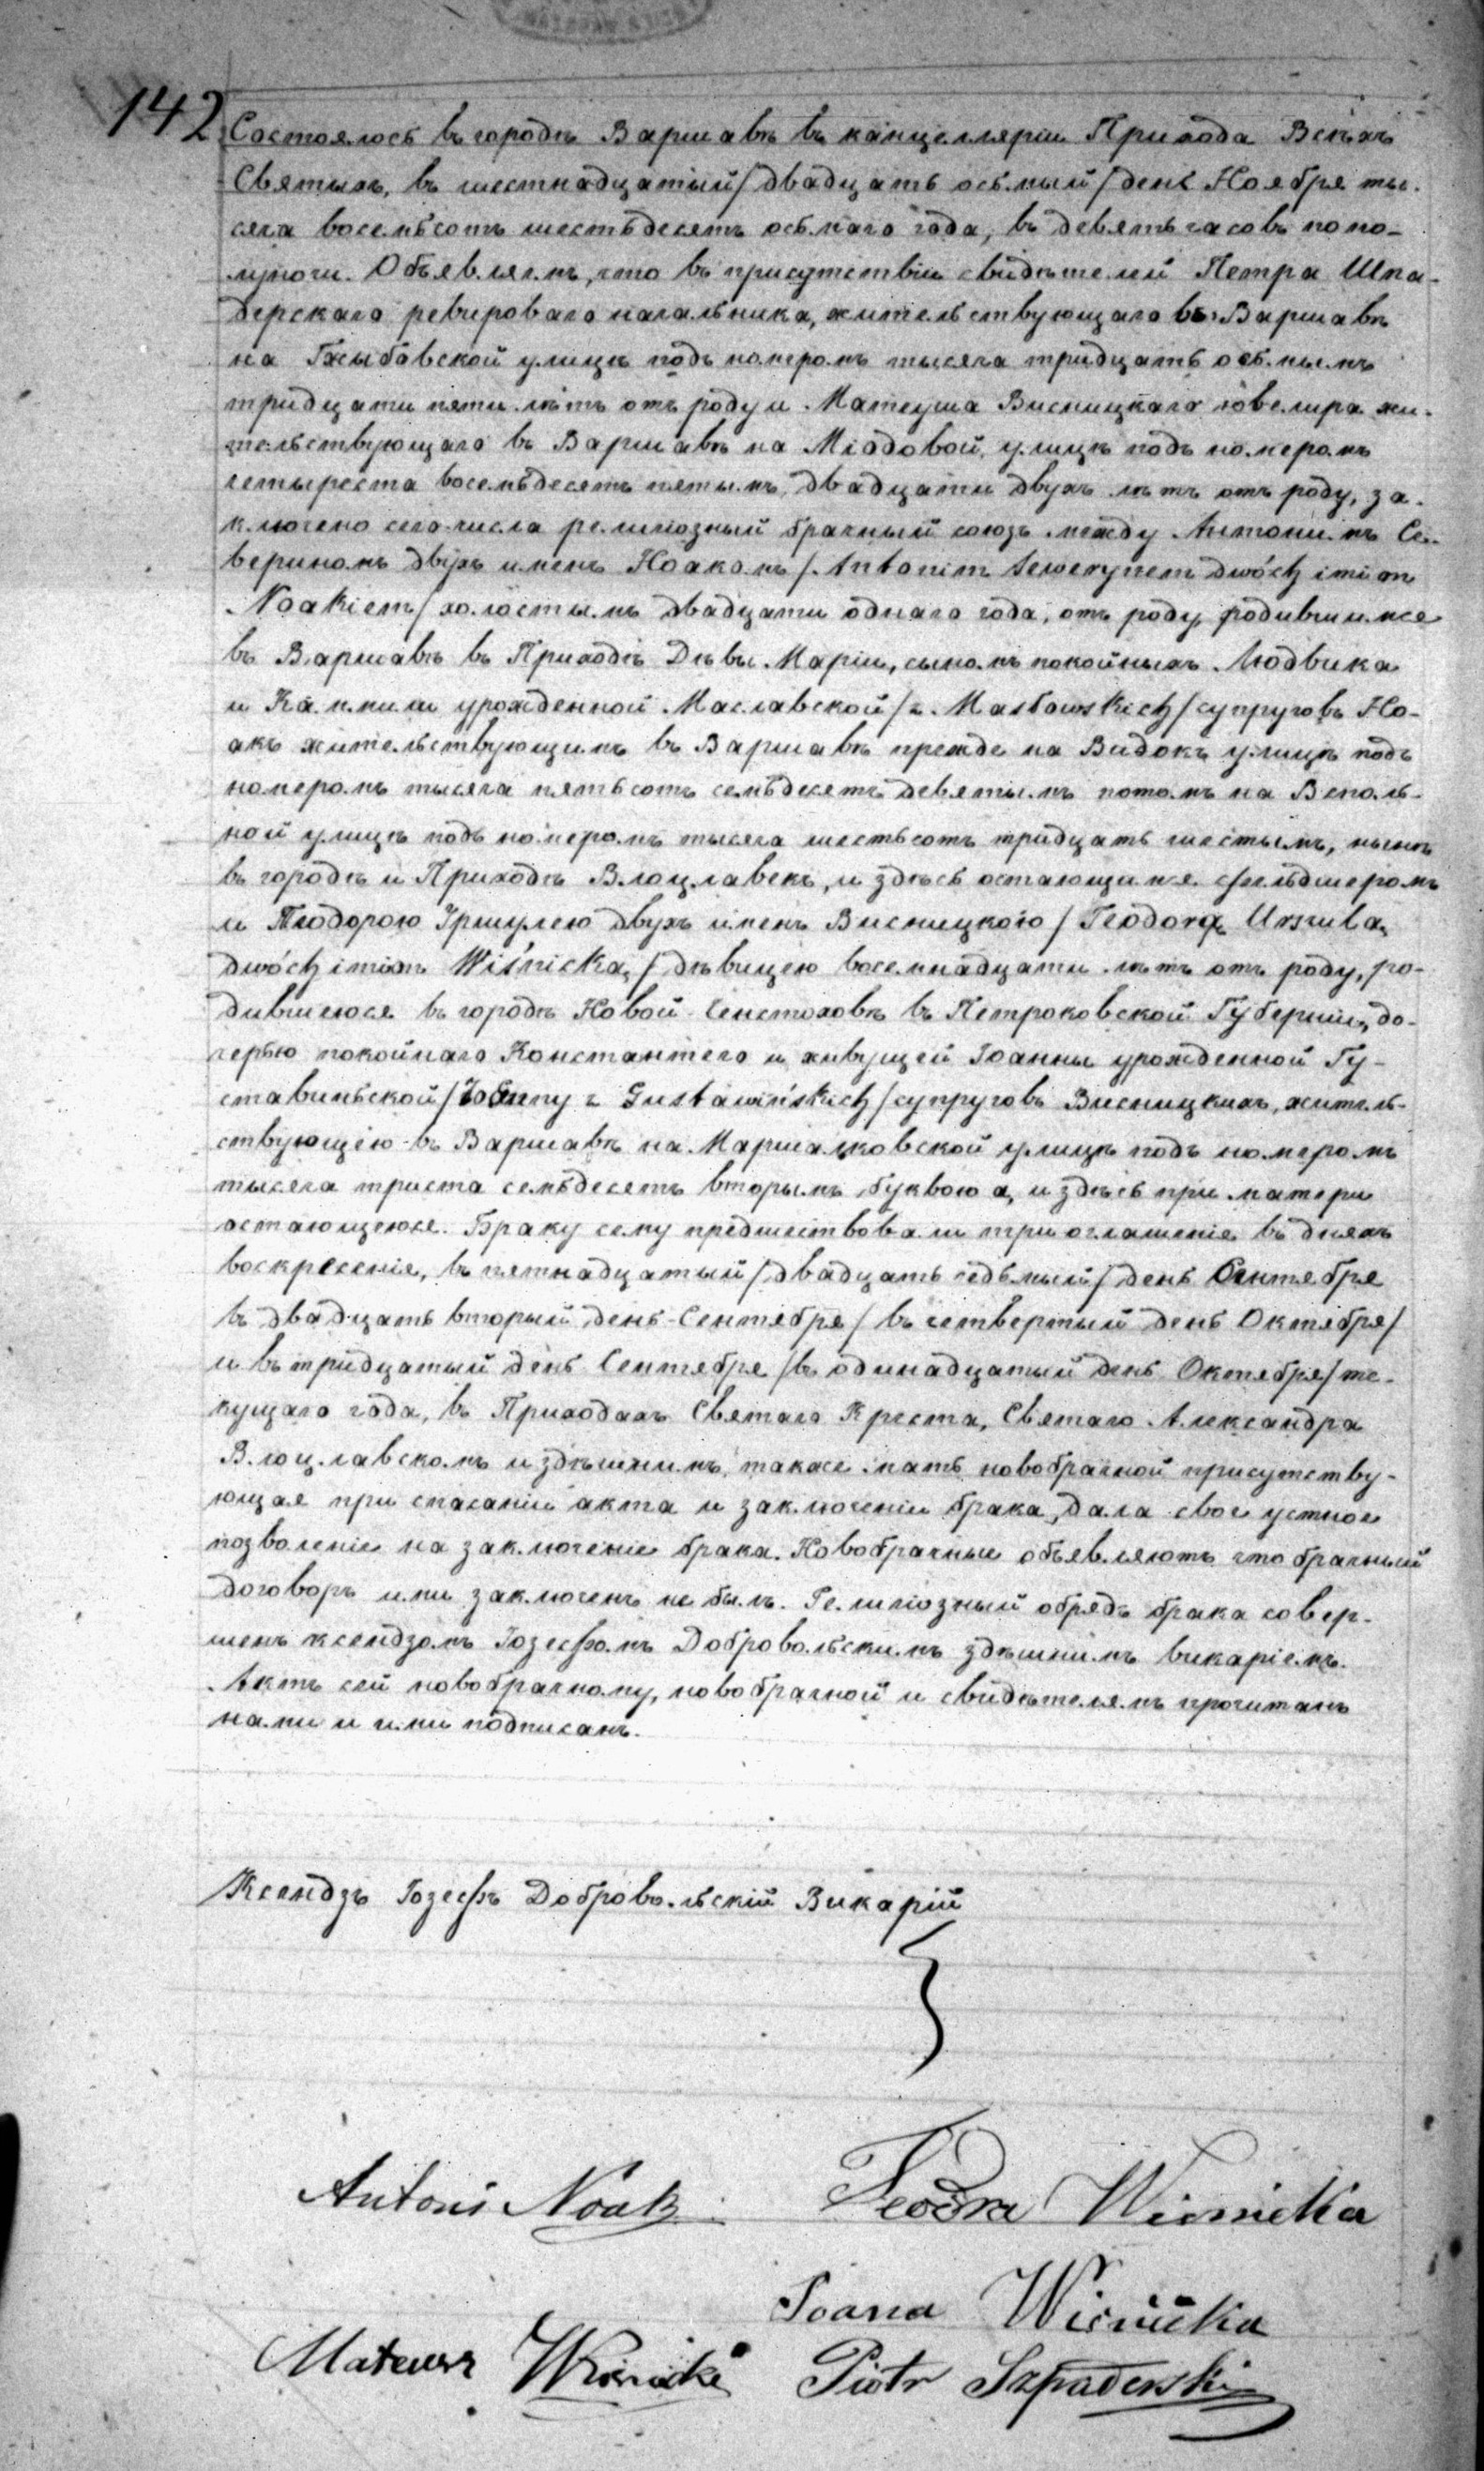 142
Состоялось въ городѣ Варшавѣ въ канцелляріи Прихода Всѣхъ
Святыхъ, въ шестнадцатый / двадцать осьмый / день Ноября ты-
сяча восемьсотъ шестьдесятъ осьмаго года, въ девять часовъ по по-
луночи. Объявляемъ, что въ присутствіи свидѣтелей Петра Шпа-
дерскаго ревироваго начальника, жительствующаго въ Варшавѣ
на Гжыбовской улицѣ подъ номеромъ тысяча тридцать осьмымъ
тридцати пяти лѣтъ отъ роду и Матеуша Висницкаго ювелира жи-
тельствующаго въ Варшавѣ на Міодовой улицѣ подъ номеромъ
четыреста восемьдесятъ пятымъ, двадцати двухъ лѣтъ отъ роду, за-
ключено сего числа религіозный брачный союзъ между Антонимъ Се-
вериномъ двухъ именъ Ноакомъ / Antonim Sewerynem dwóch imion
Noakiem / холостымъ двадцати одного года, отъ роду, родившимся
въ Варшавѣ въ Приходѣ Дѣвы Маріи, сыномъ покойныхъ Людвика
и Камилли урожденной Маславской / z Masłowskich / супруговъ Но-
акъ жительствующимъ въ Варшавѣ прежде на Видокъ улицѣ подъ
номеромъ тысяча пятьсотъ семьдесятъ девятымъ потомъ на Вспольно-
ной улицѣ подъ номеромъ тысяча шестьсотъ тридцать шестымъ, нынѣ
въ городѣ и Приходѣ Влоцлавекъ, и здѣсь остающимся фельдшеромъ
и Теодорою Уршулею двухъ именъ Висницкою / Teodorą Urszulą
dwóch imion Wiśnicką / дѣвицею восемнадцати лѣтъ отъ роду, ро-
дившеюся въ городѣ Новой Ченстоховѣ въ Петроковской Губерніи, до-
черью покойнаго Константего и живущей Іоанны урожденной Гу-
ставинской / Joanny z Gustawińskich / супруговъ Висницкихъ, житель-
ствующею въ Варшавѣ на Маршалковской улицѣ подъ номеромъ
тысяча триста семьдесятъ вторымъ буквою а, и здѣсь при матери
остающеюся. Браку сему предшествовали три оглашенія въ дняхъ
воскресенія, въ пятнадцатый / двадцать седьмый / день Сентября
въ двадцать вторый день Сентября / въ четвертый день Октября /
и въ тридцатый день Сентября / въ одинадцатый день Октября / те-
кущаго года, въ Приходахъ Святаго Креста, Святаго Александра
Влоцлавскомъ и здѣшнимъ, такосе мать новобрачной присутству-
ющая при списаніи акта и заключеніи брака, дала свое устное
позволеніе на заключеніе брака. Новобрачные объявляютъ что брачный
договоръ ими заключенъ не былъ. Религіозный обрядъ брака совер-
шенъ ксендзомъ Іозефомъ Добровольскимъ здѣшнимъ викаріемъ.
Актъ сей новобрачному, новобрачной и свидѣтелямъ прочитанъ
нами и ими подписанъ.
Ксендзъ Іозефъ Добровольскій Викарій
Antoni Noak Teodora Wiśnicka
Joana Wiśnicka
Mateusz Wiśnicki Piotr Szpaderski